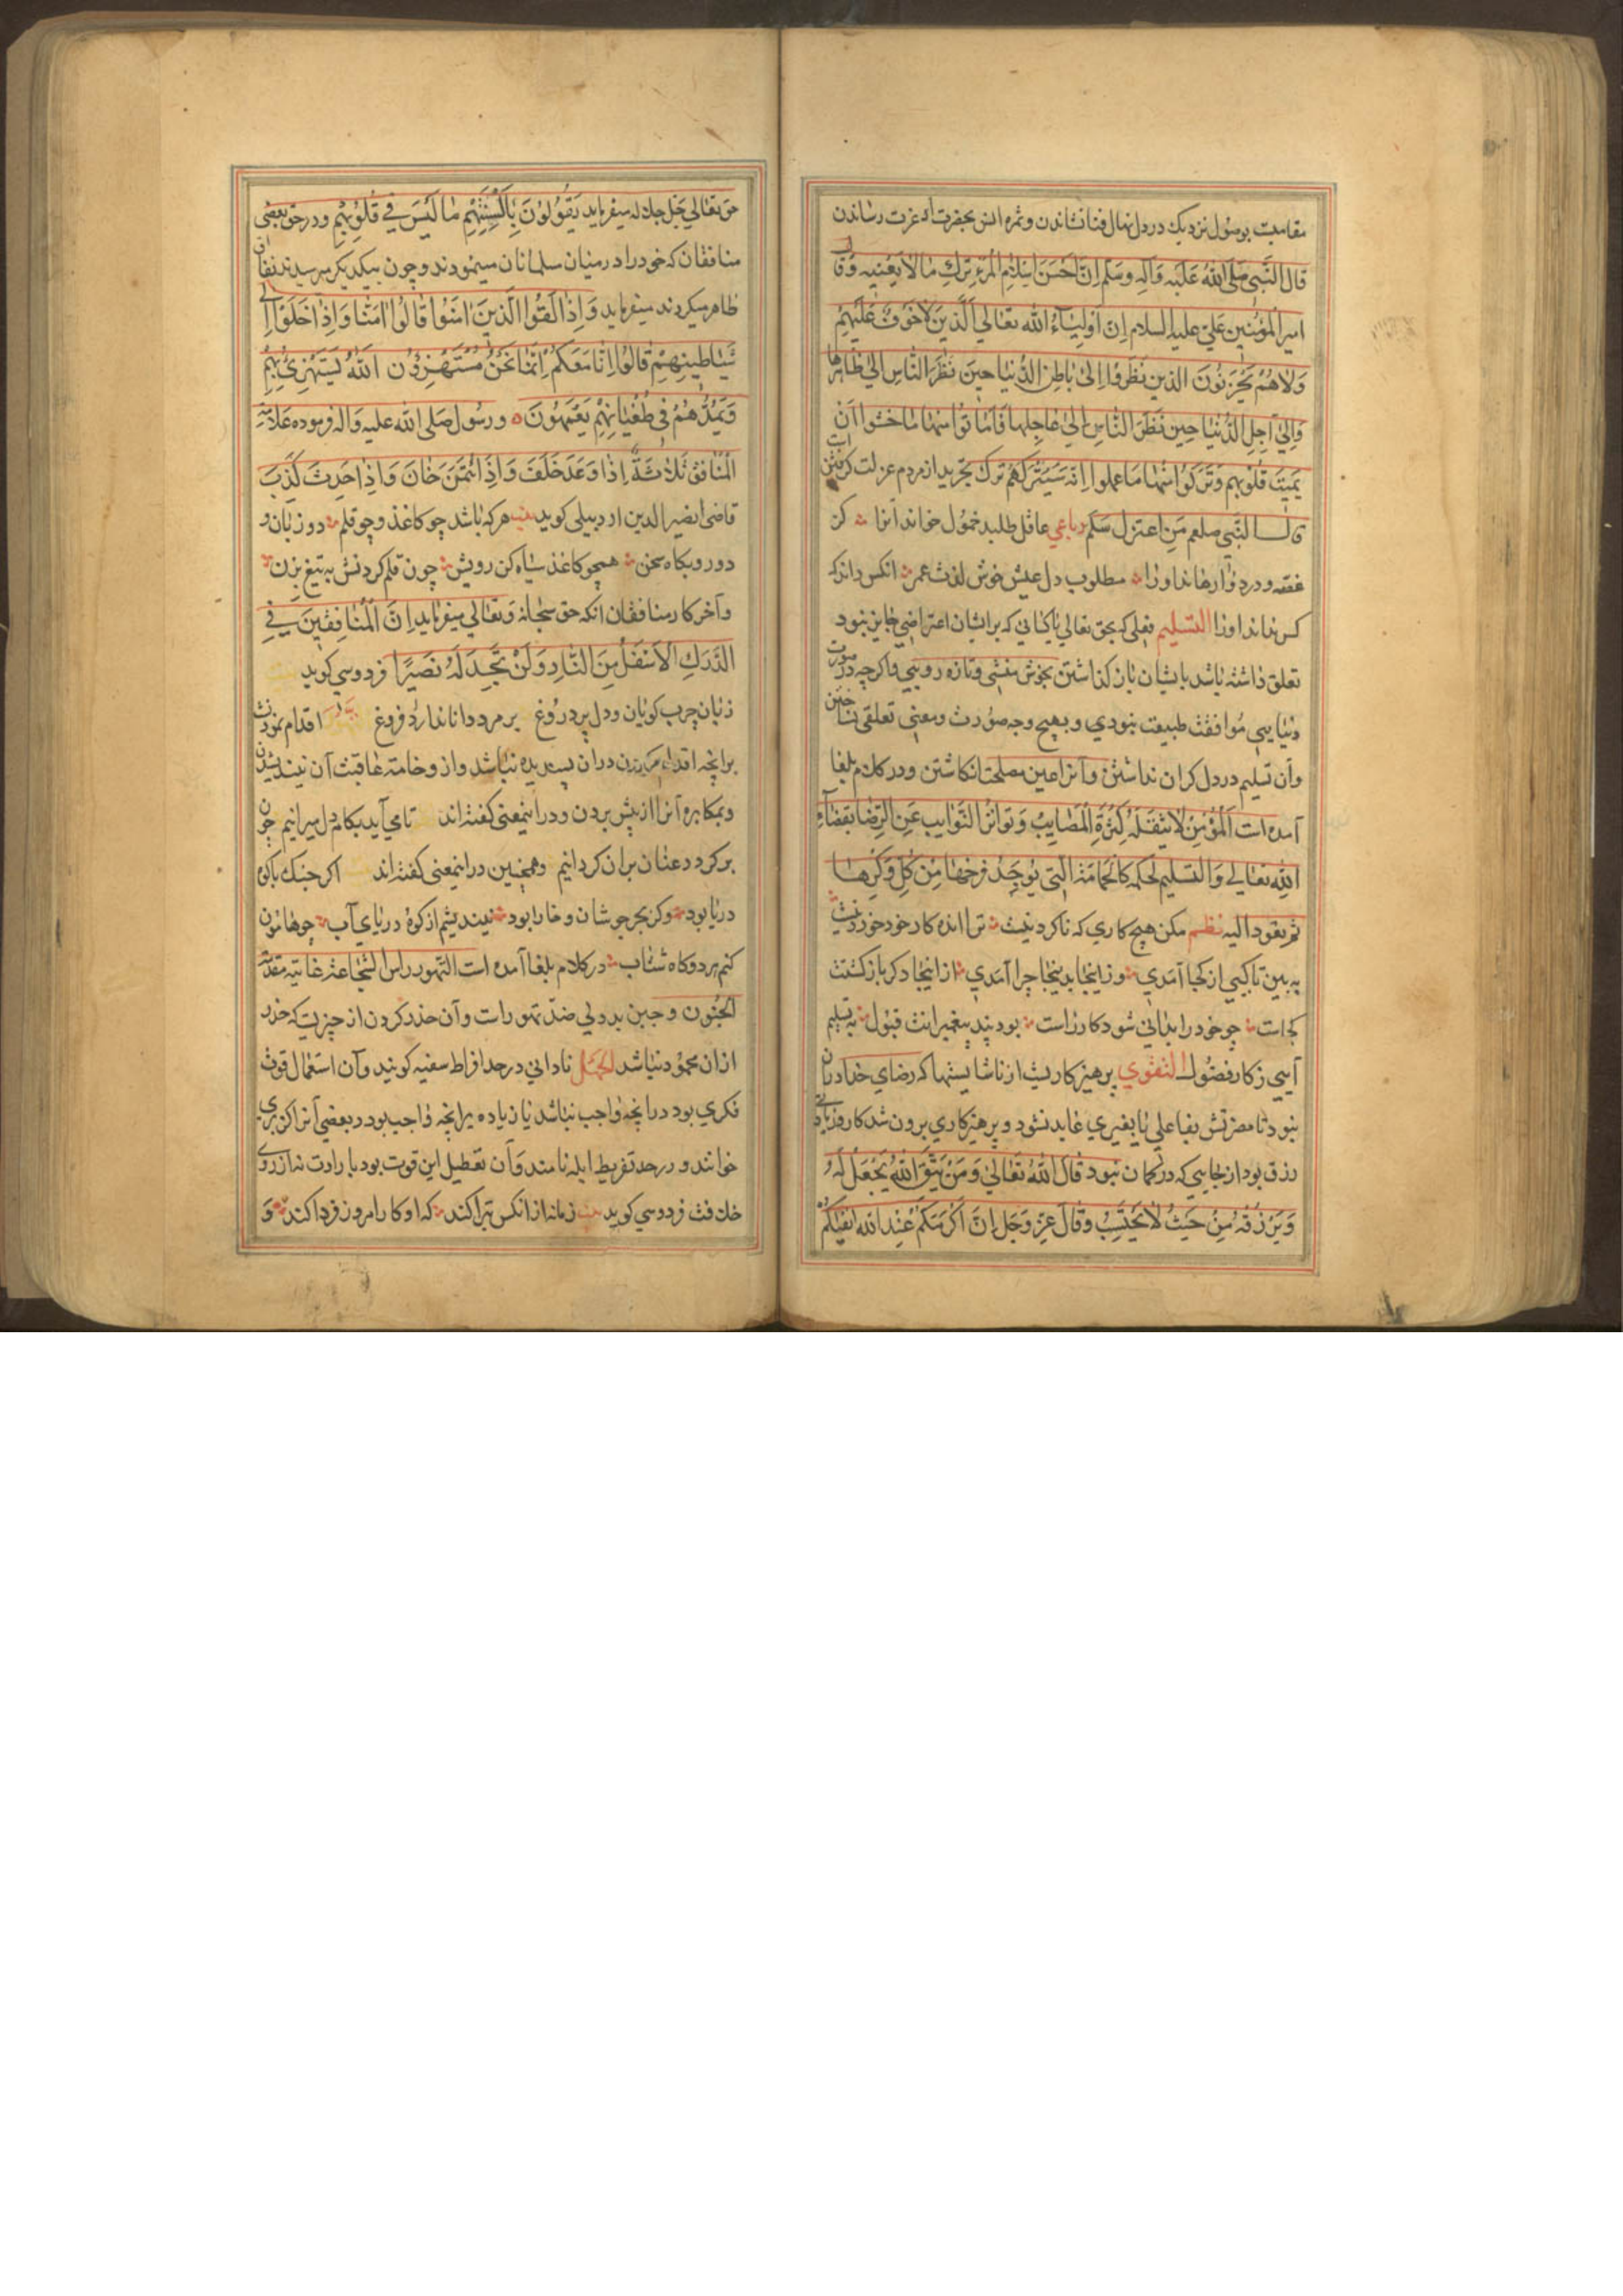 مقامیت بوصول نزدیک در دل نهال فنا نشاندن و ثمره انس بحضرت عزت رساندن
قال النَّبی صَلَّی اللهُ عَلَیْهِ وَآلِهِ وَسَلَّم اِنَّ اَحْسَنَ اِسْلامِ الْمَرْءِ تَرْكِ مَا لا یَعْنِیهِ وَقَال
امیر الْمُؤْمِنین عَلیّ علیه السلام اِنَّ اَوْلِیٰآءُ الله تعٰالیٰ اَلَّذینَ لا خَوْفٌ عَلَیْهِمْ
وَلاٰ هُمْ یَحْزَنُونَ الذین نَظَرُوا اِلیٰ بٰاطِنِ الدُّنیٰا حِینَ نَظَرَ النّاس اِلیٰ ظٰاهِرِهٰا
وَاِلیٰ آجِلِ الدُّنْیٰا حِینَ نَظَرَ النّاس اِلیٰ عٰاجِلِهٰا فَاَمٰاتُوا مِنْهٰا مٰا خَشَوا اَنْ
یَمِیتَ قُلُوبَهم وَتَرَکُوا مِنْهٰا مٰا عَلِموا اَنَّهُ سَیَتْرُکُهُمْ ترک تجرید از مردم عزلت گرفتن است
قال النَّبی صلعم مَنِ اعتزل سَلَم رباعی عاقل طلبد خمول خواند آنرا کز
غصه و درد وا رهاند او را مطلوب دل عیش خوش لذت عمر انکس داند که
کس نداند او را التسلیم بفعلی که بحق تعالی یا کسانی که بر ایشان اعتراض جایز نبود
تعلق داشته باشد با یشان باز گذاشتن بخوش منشی و تازه رویی و اکرچه در صورت
دنیایی موافقت طبیعت نبودی و بهیچ وجه صورت و معنی تعلقی نساختن
وآن تسلیم در دل کران نداشتن و آنرا عین مصلحت انکاشتن و در کلام بلغا
آمده است اَلْمُؤمِنُ لاٰ تَنْقُلُهُ کَثْرَةِ الْمَصٰایِبُ وَتَوٰاتُرُ النَّوٰایِب عَنِ الرِّضٰا بقَضٰآءِ
اللهِ تعٰالی وَالتسلیم لحکمه کَالْحَمٰامَةِ الَّتی یُوجَدُ فرخهٰا مِنْ كُلّ وَکْرِهٰا
ثم تعود الیه نظم مکن هیچ کاری که ناکردنیست ترا انده کار خود خوردنیست
به بین تا کیی از کجا آمدی وز اینجا بدینجا چرا آمدی از اینجا دکر باز کشتت
کجاست چو خود را بدانی شود کار راست بود پند پیغمبرانت قبول به تسلیم
آیی ز کار فضول التقوی پرهیزکاریست از ناشایستها که رضای خدا در آن
نبود تا مضرتش بفاعلی یا بغیری عاید نشود و پرهیزکاری برون شد کار و زیادتی
رزق بود از جایی که در کمان نبود قٰالَ اللهُ تَعٰالیٰ وَمَنْ یَتَّقِ اللهَ یَجْعَلْ لَهُ
وَیَرْزُقْهُ مِنْ حَیْثُ لاٰ یَحْتَسِبُ وَقٰالَ عَزَّ وَجَلَّ اِنَّ اَکْرَمَکُمْ عِنْدَ اللهِ اتقیٰکُمْ
حق تعالی جَلّ جلاله میفرماید یَقُولُونَ بِاَلْسِنَتِهِمْ مٰا لَیْسَ فی قُلُوبِهِمْ و در حق بعضی
منافقان که خود را در میان مسلمانان مینمودند و چون بیکدیکر میرسیدند نفاق
ظاهر میکردند میفرماید وَاِذٰا لَقُوا الَّذینَ اٰمَنُوا قٰالُوا اٰمَنّٰا وَاِذٰا خَلَوْا اِلیٰ
شَیٰاطینِهِمْ قٰالُوا اِنّٰا مَعَکُمْ اِنَّمٰا نَحْنُ مُسْتَهْزِؤُنَ اللهُ یَسْتَهْزِئُ بِهِمْ
وَیَمُدُّهُمْ فی طُغْیٰانِهِمْ یَعْمَهُونَ ورسُول صَلی الله علیه وآله فرموده عَلامَة
الْمُنٰافِقِ ثَلاٰثَةٌ اِذٰا وَعَدَ خَلَفَ وَاِذَا ائْتُمِنَ خٰانَ وَاِذٰا حَدَّثَ کَذَبَ
قاضی نصیر الدین اردبیلی کوید بیت هرکه باشد چو کاغذ و چو قلم دو زبان و
دو رو بکاه سخن همچو کاغذ سیاه کن رویش چون قلم کردنش به تیغ بزن
و آخر کار منافقان انکه حق سبحانه وتعٰالی میفرماید اِنَّ الْمُنٰافِقینَ فی
الدَّرَكِ الاَسْفَلِ مِنَ النّٰارِ وَلَنْ تَجِدَ لَهُ نَصیرًا فردوسی کوید
زبان چرب کویان و دل پر دروغ بر مرد دانا ندارد فروغ اقدام نمودنست
برانچه اقدام کردن دران پسندیده نباشد و از وخامت عاقبت آن نیندیشیدن
و بمکابره آنرا از پیش بردن و در اینمعنی کفته‌اند تا می‌آید بکام دل میرانیم چون
برکردد عنان بران کردانیم و همچنین در اینمعنی کفته‌اند اکر جنک با کوه
دریا بود وکر بحر جوشان و خارا بود نیندیشم از کوه دریای آب چو هامون
کنم هر دو کاه شتاب در کلام بلغا آمده است التهور راس الشجاعة غایته مقدمة
الجُنون و جبن بددلی ضدّ تهور است و آن حذر کردن از چیزیست که حذر
ازان محمود نباشد الجهل نادانی در حد افراط سفیه کویند و آن استعمال قوت
فکری بود در انچه واجب نباشد یا زیاده بر انچه واجب بود و بعضی آنرا کربزی
خوانند و در حد تفریط ابله نامند و آن تعطیل این قوت بود با رادت نه از روی
خلقت فردوسی کوید بیت زمانه از انکس تبرا کند که او کار امروز فردا کند و